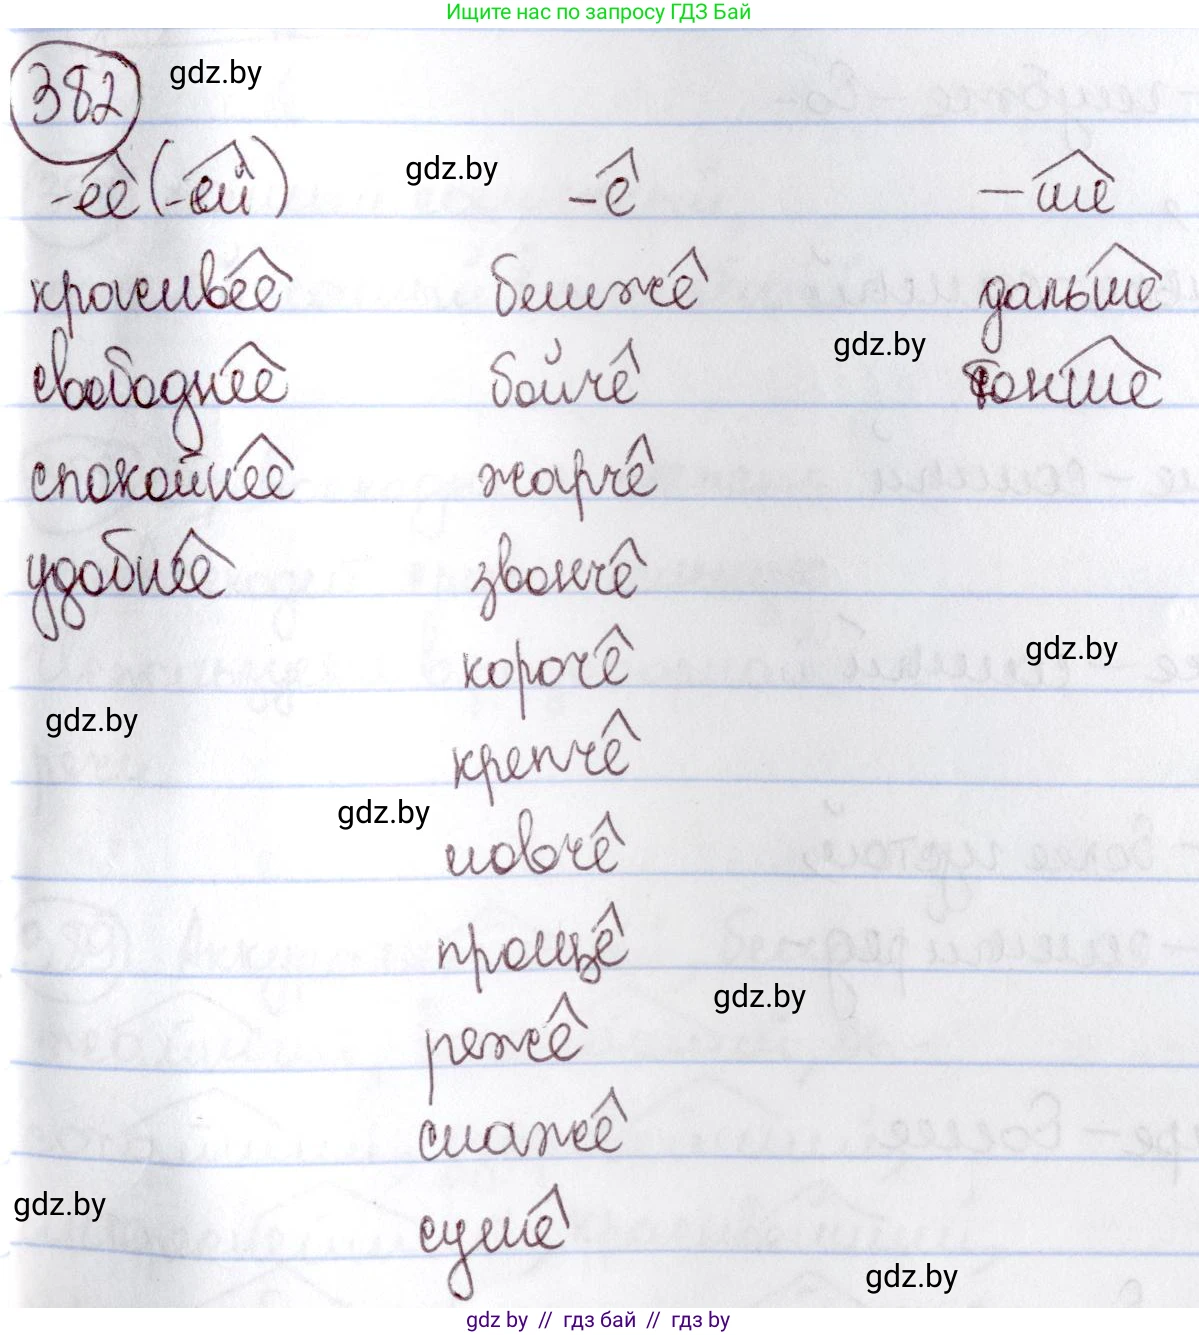 Ищите нас по запросу ГДЗ Бай
382 gdz.by
gdz.by
-ее (-ей) -е -ше
красивее ближе дальше
gdz.by
свободнее бойче тоньше
спокойнее жарче
удобнее звонче
короче gdz.by
gdz.by
крепче
gdz.by
ловче
проще
gdz.by
реже
слаже
gdz.by
суше
gdz.by
gdz by // гдз бай // гдз by